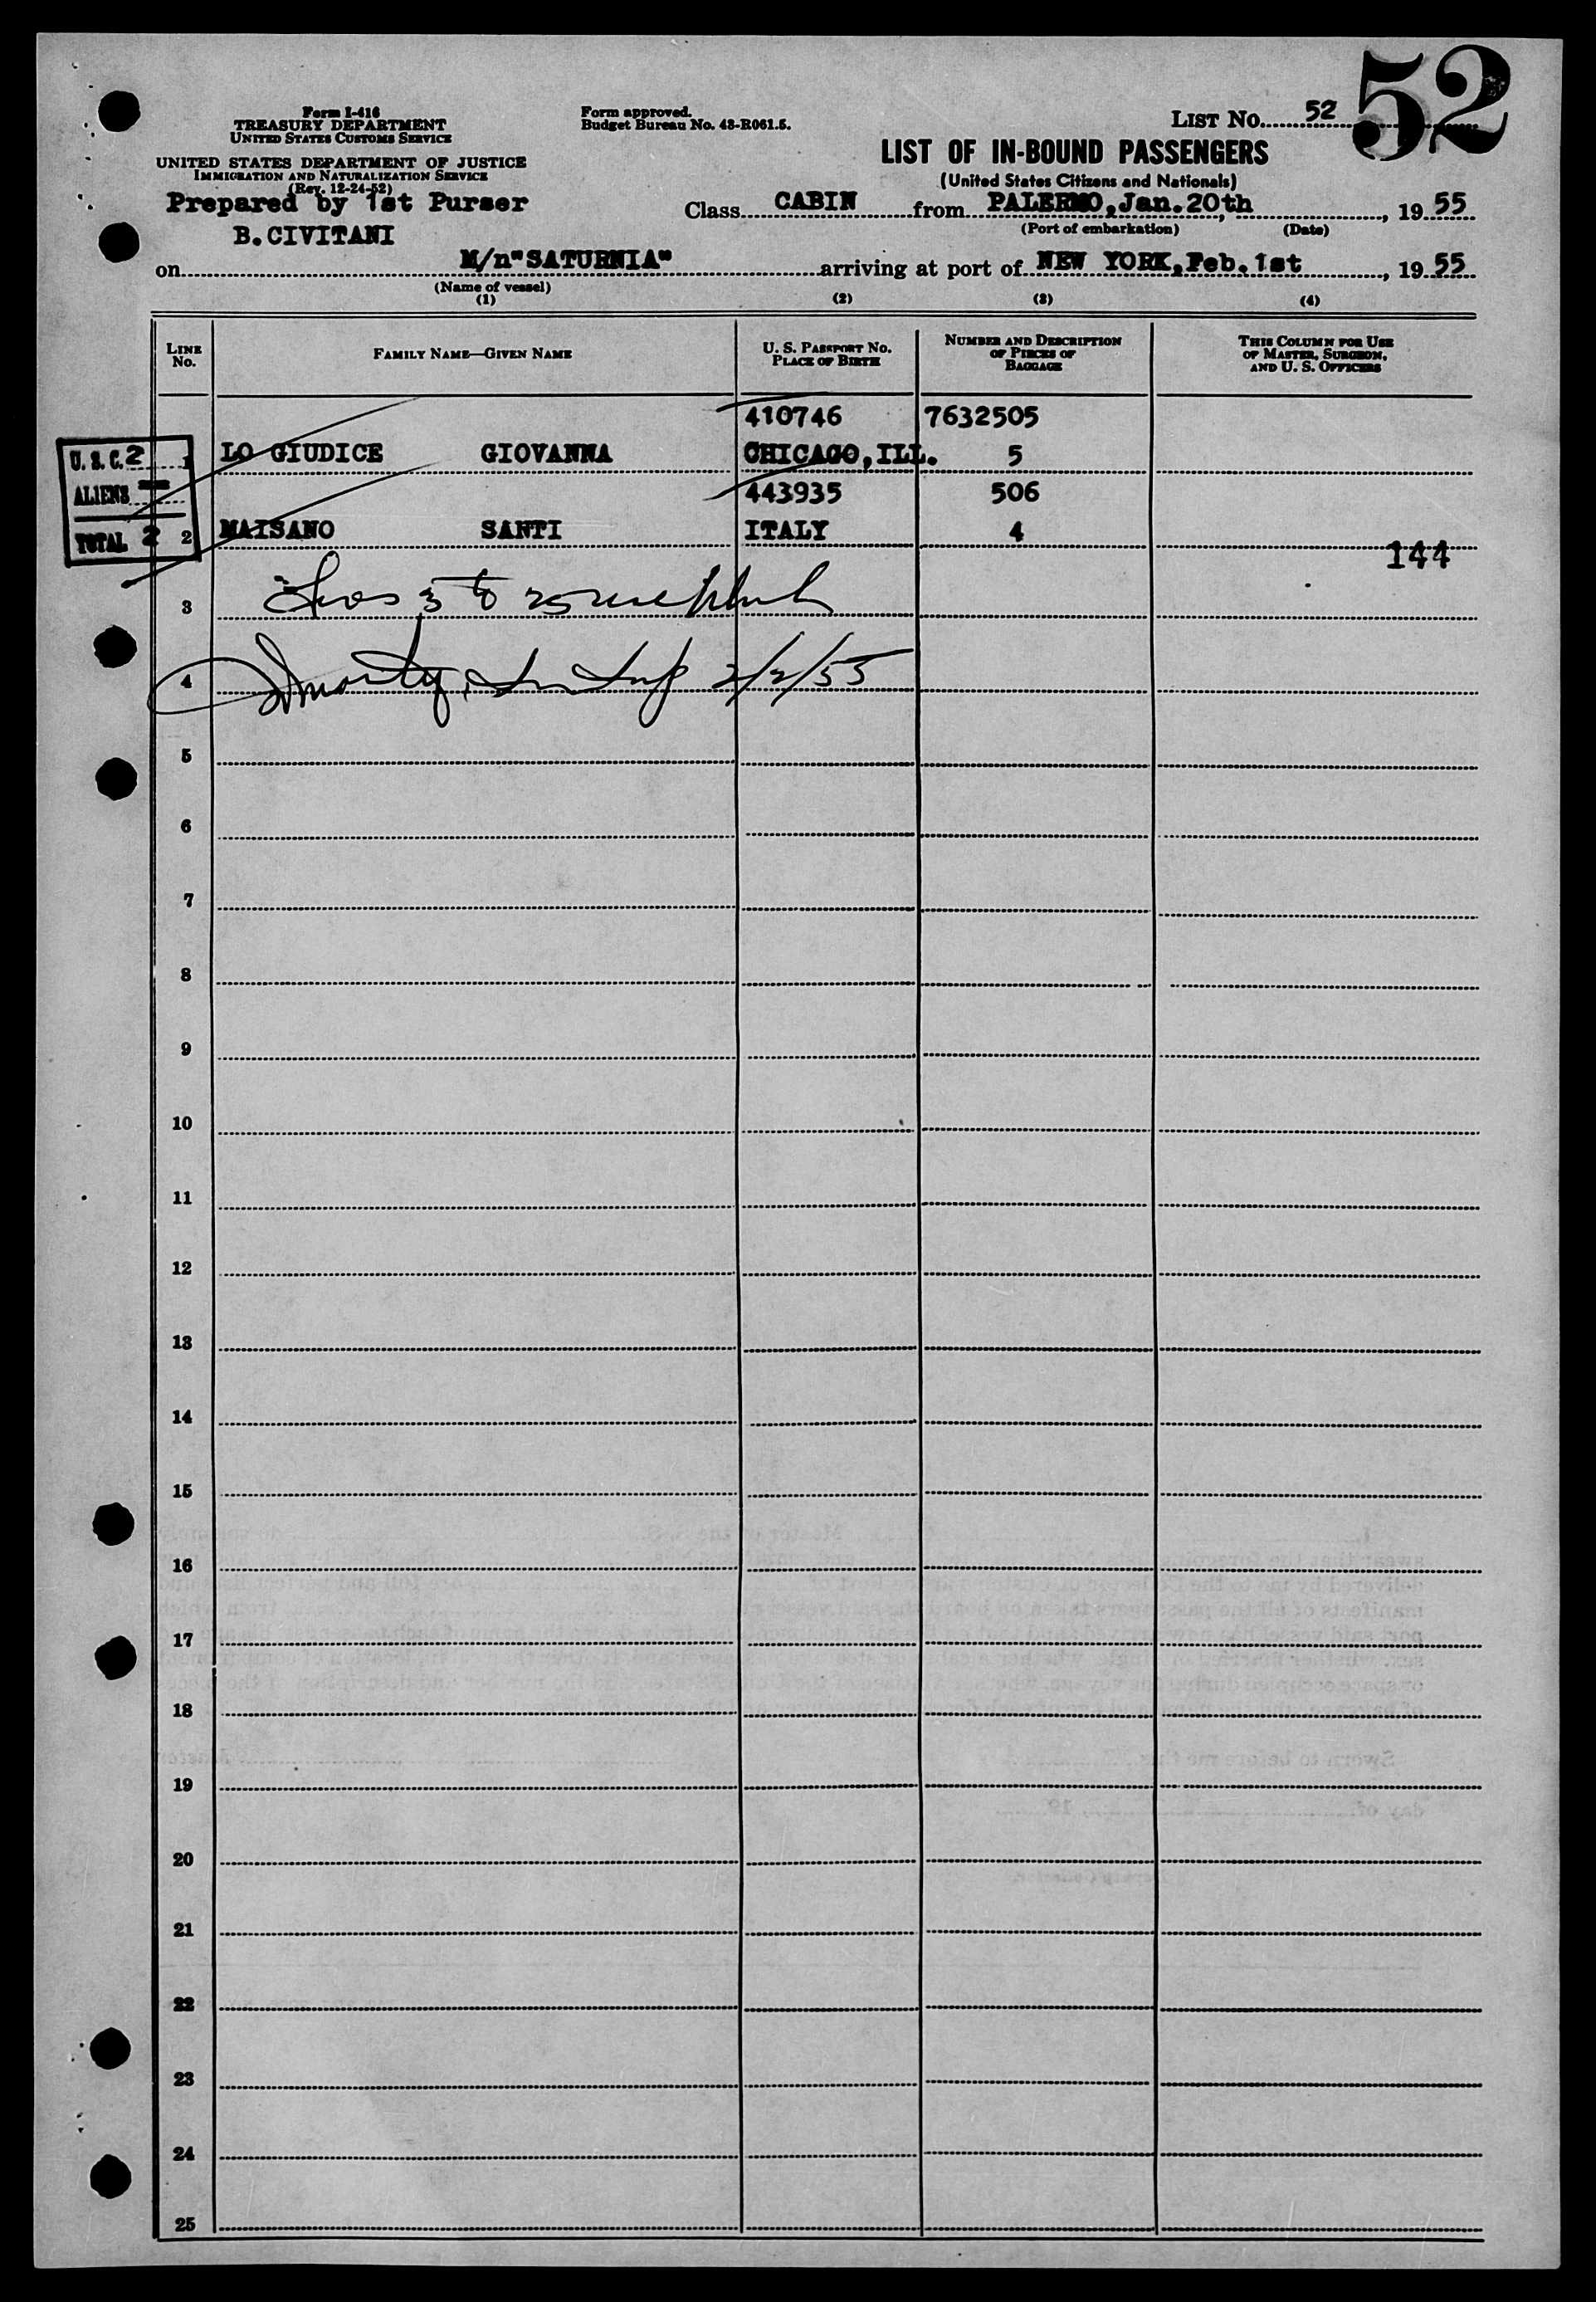 52
Form I-416
TREASURY DEPARTMENT
UNITED STATES CUSTOMS SERVICE
Form approved.
Budget Bureau No. 43-R061.5.
LIST No. 52
UNITED STATES DEPARTMENT OF JUSTICE
IMMIGRATION AND NATURALIZATION SERVICE
(Rev. 12-24-52)
LIST OF IN-BOUND PASSENGERS
(United States Citizens and Nationals)
Prepared by 1st Purser
B.CIVITANI
Class CABIN from PALERMO, Jan. 20th, 1955
(Port of embarkation) (Date)
on M/n"SATURNIA" arriving at port of NEW YORK, Feb. 1st, 1955
(Name of vessel)
(1) (2) (3) (4)
LINE No.
FAMILY NAME—GIVEN NAME
U. S. PASSPORT No. PLACE OF BIRTH
NUMBER AND DESCRIPTION OF PIECES OF BAGGAGE
THIS COLUMN FOR USE OF MASTER, SURGEON, AND U. S. OFFICERS
410746 7632505
U. S. C. 2
1 LO GIUDICE GIOVANNA CHICAGO, ILL. 5
ALIENS —
443935 506
TOTAL 2
2 MAISANO SANTI ITALY 4
144
3 3 to 25
4 2/2/55
5
6
7
8
9
10
11
12
13
14
15
16
17
18
19
20
21
22
23
24
25